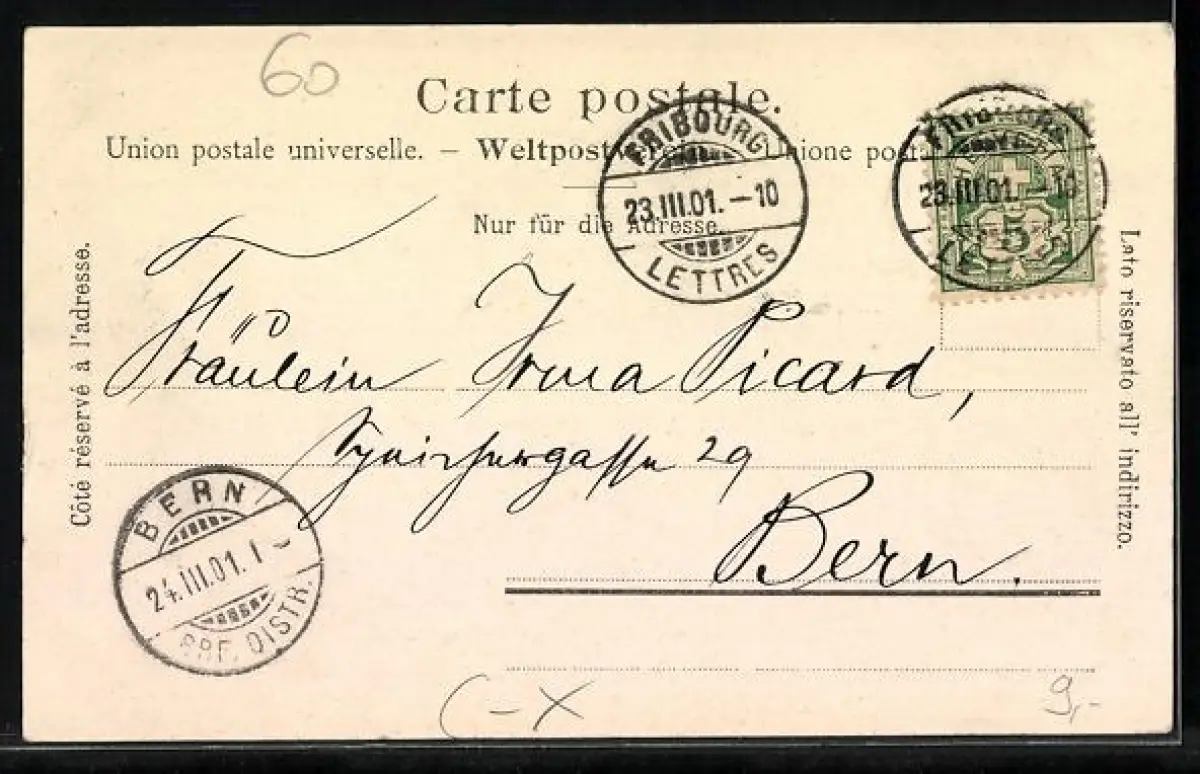 60
Carte postale.
Union postale universelle. – Weltpostverein. – Unione posta
Nur für die Adresse.
FRIBOURG
23.III.01.–10
LETTRES
FRIBOURG
23.III.01.–10
LE
5
Côté réservé à l'adresse.
Lato riservato all' indirizzo.
Fräulein Irma Picard,
Speichergasse 29
Bern.
BERN
24.III.01.I
BRF. DISTR.
C – X
9,-